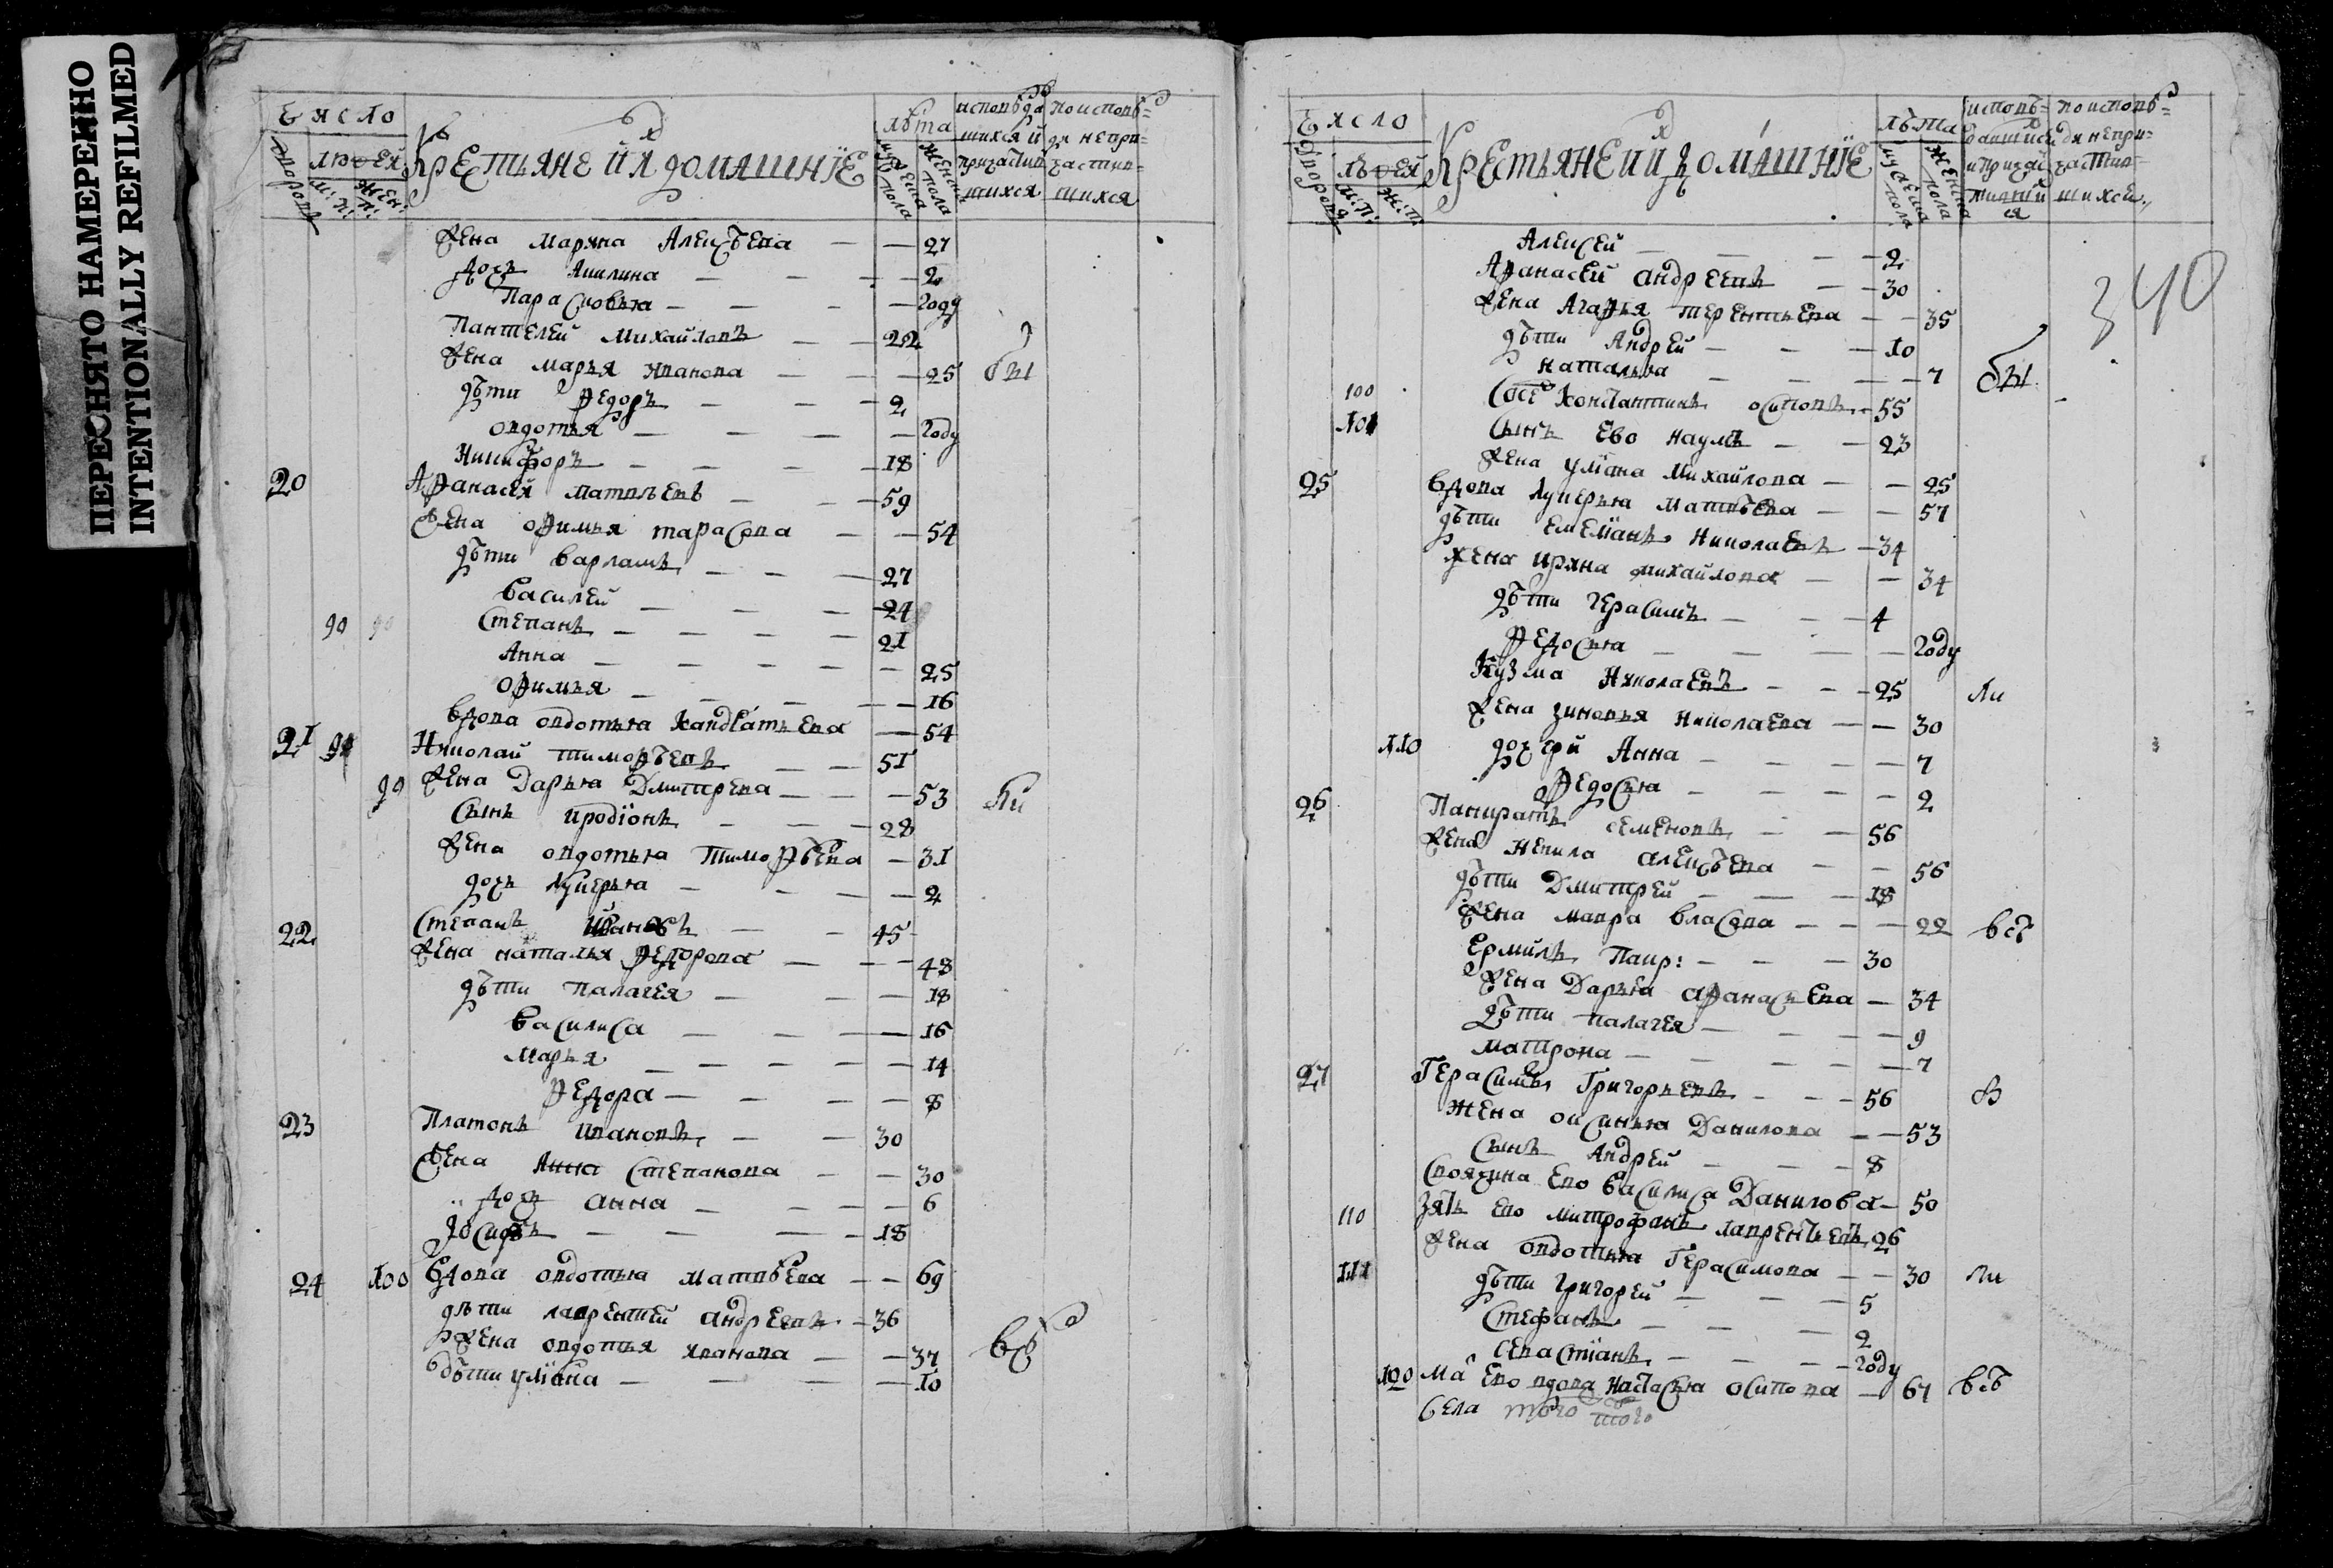 ПЕРЕСНЯТО НАМЕРЕННО
INTENTIONALLY REFILMED
Число
лѣта
людей
Крестьяне и ихъ домашнїе
дворовъ
м: п:
жен: п:
мужеска пола
женска пола
исповѣдавшихся и причастившихся
по исповѣди не причастившихся
Жена Марина Алексѣева — — 27
дочь Акилина — — — 2
Парасковья — — — году
Пантелей Михайловъ — — 22
Жена Марья Иванова — — — 25 бы
дѣти Ѳедоръ — — — 2
Овдотья — — — — году
Никифоръ — — — — 18
20 Аѳанасей Матвѣевъ — — 59
Жена Оѳимья Тарасова — — 54
дѣти Варламъ — — — 27
Василей — — — 24
90 90 Степанъ — — — — 21
Анна — — — — — 25
Оѳимья — — — — 16
вдова Овдотья Кандратьева — 54
21 91 Николай Тимоѳѣевъ — — 51
90 Жена Дарья Дмитрева — — — 53 ли
Сынъ Иродїонъ — — — 28
Жена Овдотья Тимоѳѣева — 31
дочь Лукерья — — — — 2
22 Степанъ Ивановъ — — 45
Жена Наталья Ѳедорова — — — 48
дѣти Палагея — — — 18
Василиса — — — — 16
Марья — — — — — 14
Ѳедора — — — — 8
23 Платонъ Ивановъ — — 30
Жена Анна Степанова — — 30
Дочь Анна — — — — 6
Іосифъ — — — — 18
24 100 Вдова Овдотья Матвѣева — — 69
дѣти Лаврентей Андреевъ — 36
Жена Овдотья Иванова — — 37 всѣ
дѣти Улїана — — — — 10
Число
лѣта
людей
Крестьяне и ихъ домашнїе
дворовъ
м: п:
ж: п:
мужеска пола
женска пола
исповѣдавшихся и причастившихся
по исповѣди не причастившихся
340
Алексей — — — 2
Аѳанасей Андреевъ — — 30
Жена Агаѳья Терентьева — — 35
дѣти Андрей — — — 10
Наталья — — — — 7 бы
100 Константинъ Осиповъ — 55
101 Сынъ Ево Наумъ — — 23
Жена Улїана Михайлова — — 25
25 Вдова Лукерья Матвѣева — — 57
дѣти Емельянъ Николаевъ — 34
Жена Ирина Михайлова — — 34
дѣти Герасимъ — — — 4
Ѳедосья — — — — году
Кузма Николаевъ — — — 25 ли
Жена Зиновья Николаева — — 30
110 дочери Анна — — — — 7
Ѳедосья — — — — 2
26 Панкратъ Семеновъ — — 56
Жена Ненила Алексѣева — — 56
дѣти Дмитрей — — — 18
Жена Мавра Власова — — — 22 всѣ
Ермилъ Панкр: — — — 30
Жена Дарья Аѳанасьева — 34
Дѣти Палагея — — — — 9
Матрона — — — — — 7
27 Герасимъ Григорьевъ — — — 56
Жена Оксинья Данилова — — 53
Сынъ Андрей — — — 8
Своячина Ево Василиса Данилова — 50
110 Зять Ево Митрофанъ Лаврентьевъ 26
Жена Овдотья Герасимова — — 30 ли
111 дѣти Григорей — — — 5
Стефанъ — — — 2
Савастїанъ — — — — году
120 Ма Ево вдова Настасья Осипова — 67 всѣ
Села того того